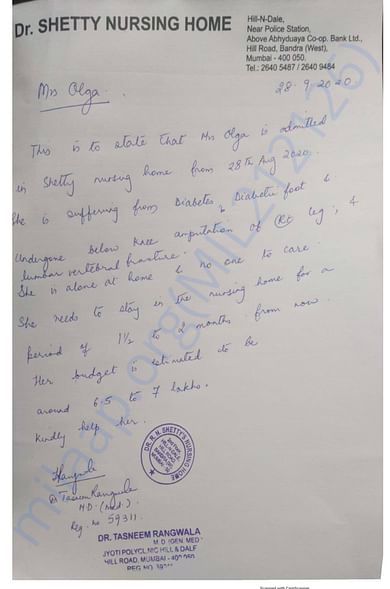 Dr. SHETTY NURSING HOME
Hill-N-Dale,
Near Police Station,
Above Abhyduaya Co-op. Bank Ltd.,
Hill Road, Bandra (West),
Mumbai - 400 050.
Tel.: 2640 5487 / 2640 9484
28.9.2020
Mrs Olga.
This is to state that Mrs Olga is admitted
in Shetty nursing home from 28th Aug 2020.
She is suffering from Diabetes, Diabetic foot &
undergone below knee amputation of Rt leg, &
lumbar vertebral fracture.
She is alone at home & no one to care.
She needs to stay in the nursing home for a
period of 1½ to 2 months from now.
Her budget is estimated to be
around 6.5 to 7 lakhs.
Kindly help her.
DR. R. N. SHETTY'S NURSING HOME
Dr Tasneem Rangwala
M.D. (Med.)
Reg. no 59311
DR. TASNEEM RANGWALA
M.D. (GEN. MED
JYOTI POLYCLINIC HILL & DALE
HILL ROAD, MUMBAI - 400 050
REG NO
milaap.org(MIL212126)